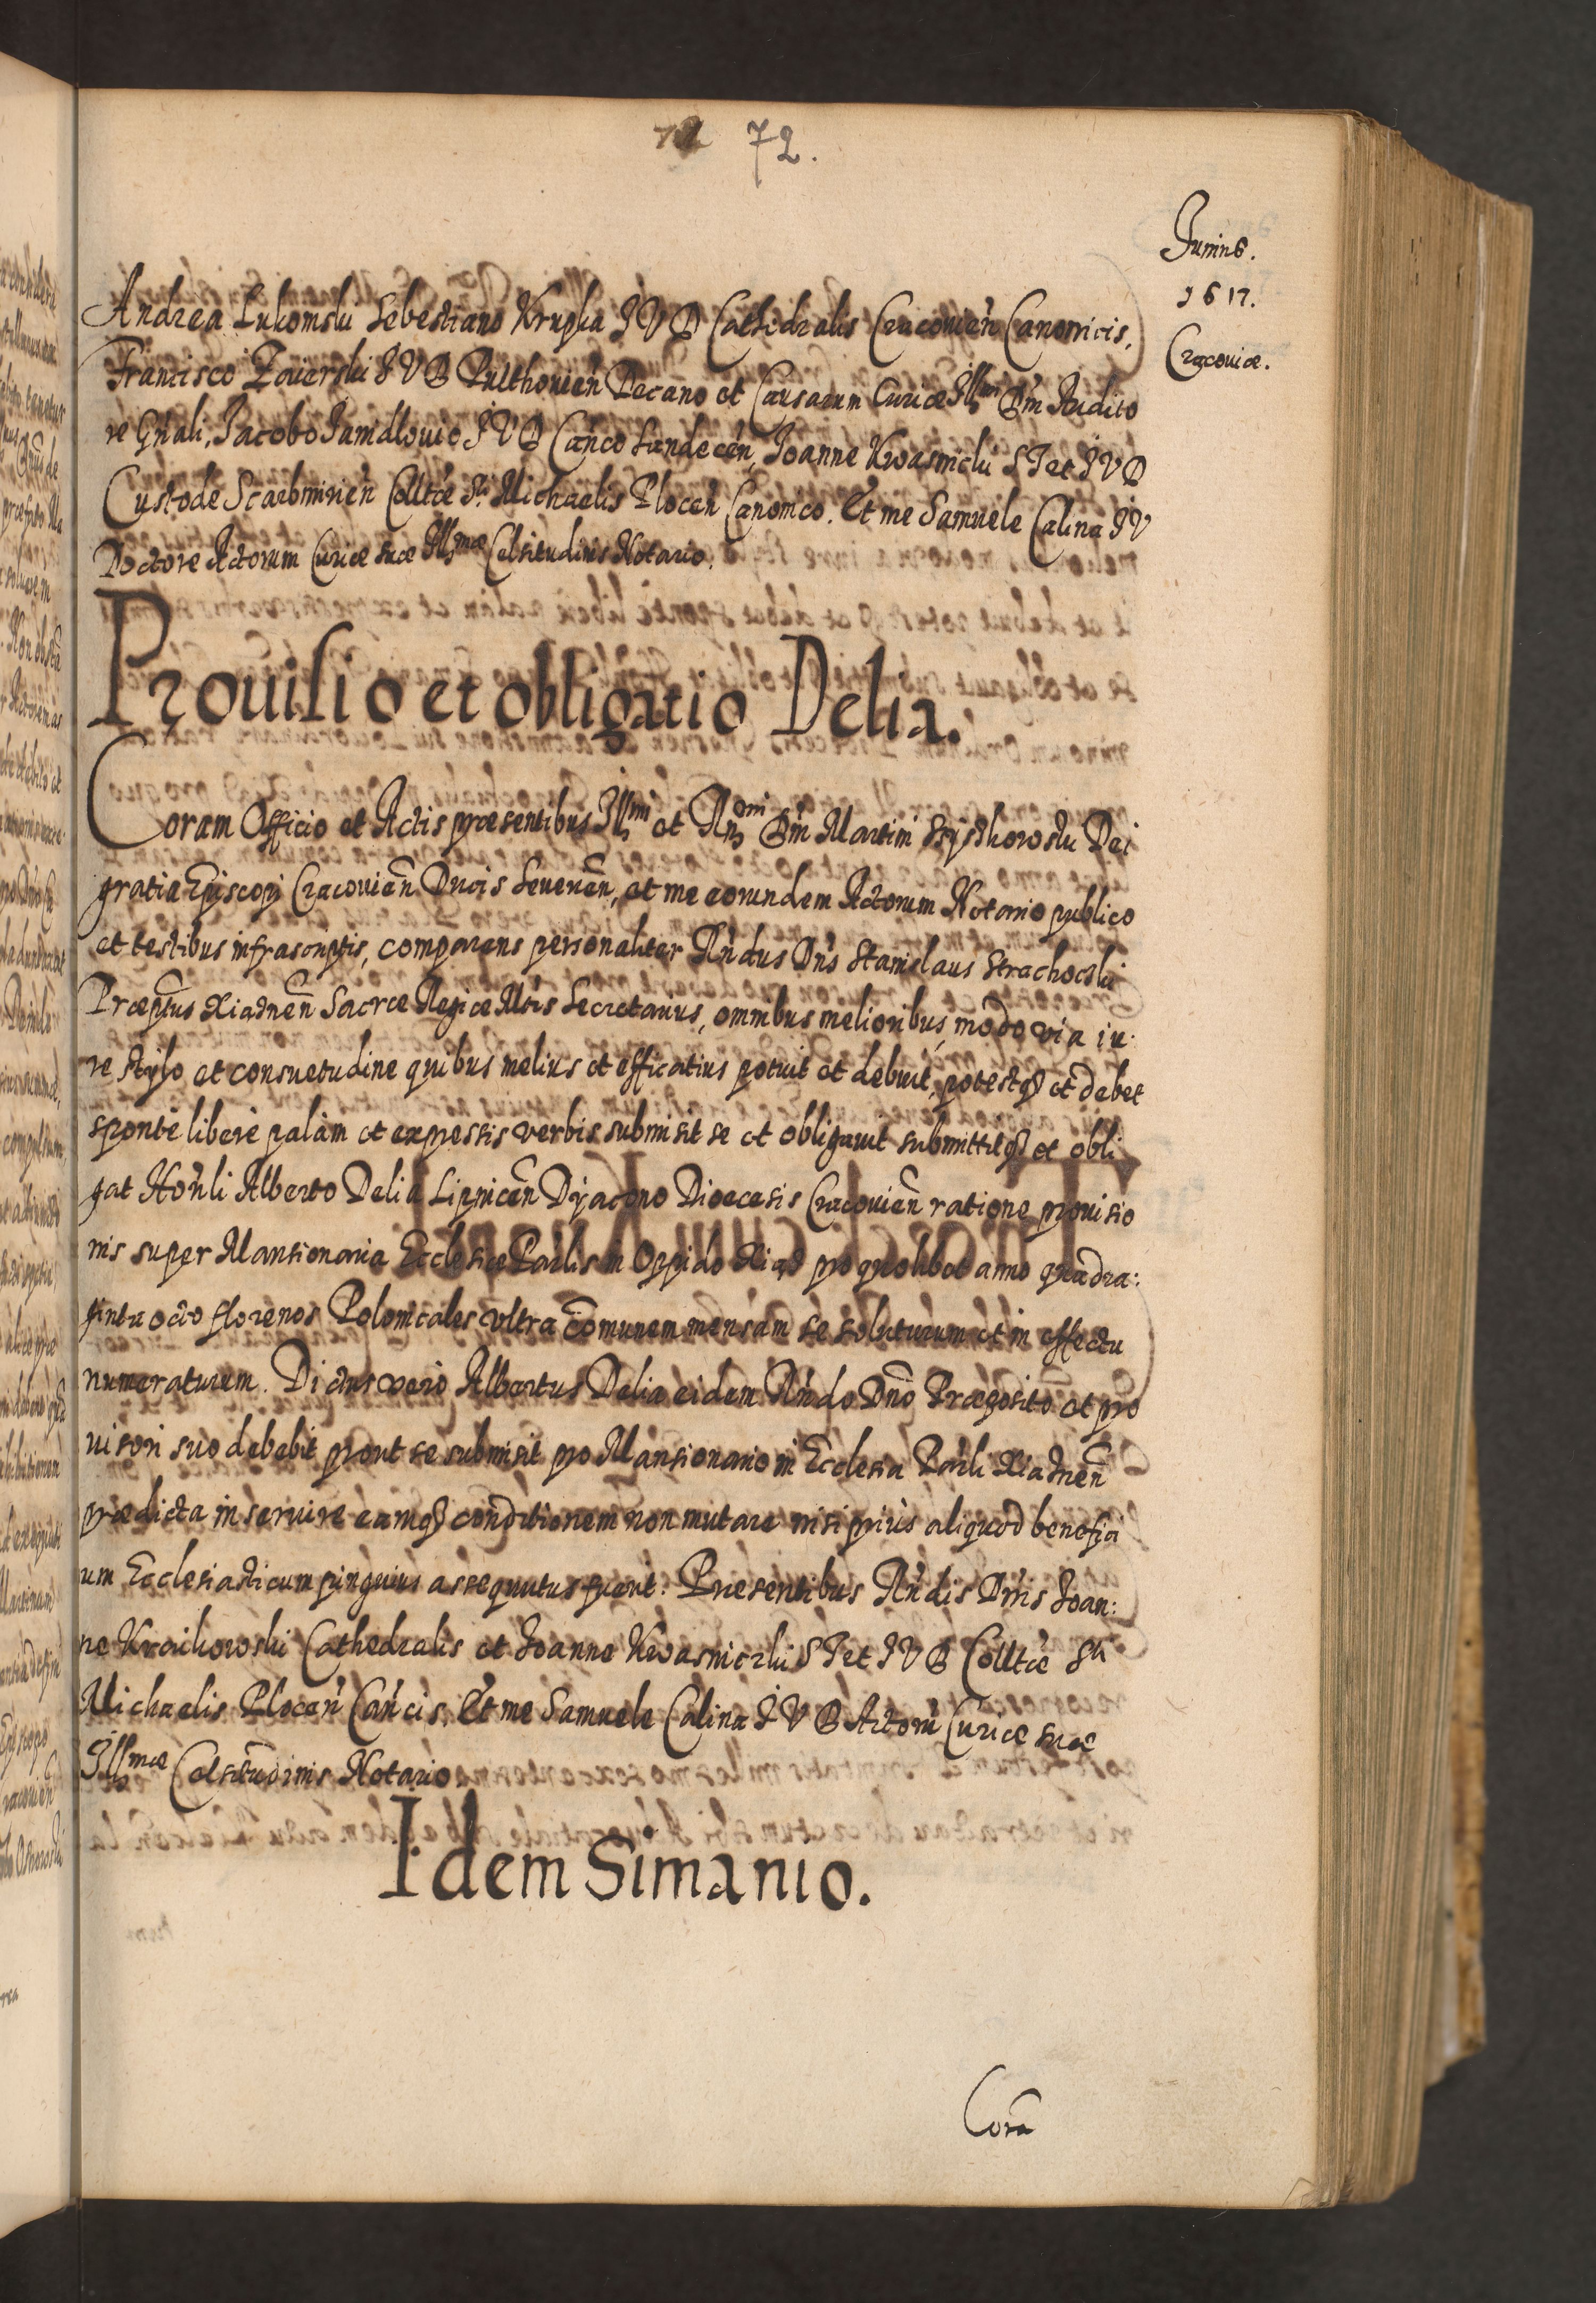 72.
Junius.
1617.
Cracoviæ.
Andrea Lukomski Sebestiano Krupka J V D Cathedralis Cracovien̄ Canonicis,
Francisco Zaierski J V D Pulthovien̄ Decano et Causarum Curiæ Illmi Dn̄i Audito
re Gn̄ali, Jacobo Jamdlovic J V D Can̄co Sandecen̄, Joanne Kwasnicki S T et J V D
Custode Scarbmirien̄ Colltæ Sti Michaelis Plocen̄ Canonico. Et me Samuele Calina J V
Doctore Actorum Curiæ suæ Illmæ Celsitudinis Notario.
Prouisio et obligatio Delia.
Coram Officio et Actis præsentibus Illmi et Rndmi Dn̄i Martini Szyszkowski Dei
gratia Episcopi Cracovien̄ Ducis Severien̄, et me eorundem Actorum Notario publico
et testibus infrascriptis, comparens personaliter Rn̄dus Dn̄s Stanislaus Strachocki
Præptus Xiadnen̄ Sacræ Regiæ Mtis Secretarius, omnibus melioribus, modo via iu:
re stylo et consuetudine quibus melius et efficatius potuit et debuit, potestq; et debet
sponte libere palàm et expressis verbis submisit se et obligavit submittitq; et obli
gat Hon̄li Alberto Delia Lipnicen̄ Dyacono Diœcesis Cracovien̄ ratione provisio
nis super Mansionaria Ecclesiæ Parlis in Oppido Xiąd pro quolibet anno quadra:
ginta octo florenos Polonicales ultra com̄unem mensam se soluturum et in effectu
numeraturum. Dictus vero Albertus Delia eidem Rn̄do Dn̄o Præposito et pro
visori suo debebit prout se submisit pro Mansionario in Ecclesia Parli Xiadnen̄
prædicta inservire eamq; conditionem non mutare nisi prius aliquod benefici
um Ecclesiasticum pinguius assequutus fuerit. Præsentibus Rn̄dis Dn̄is Joan:
ne Kraikowski Cathedralis et Joanne Kwasnicki S T et J V D Colltæ Sti
Michaelis Plocen̄ Can̄cis. Et me Samuele Calina J V D Actorū Curiæ suæ
Illmæ Celsitudinis Notario
Idem Simanio.
Corā